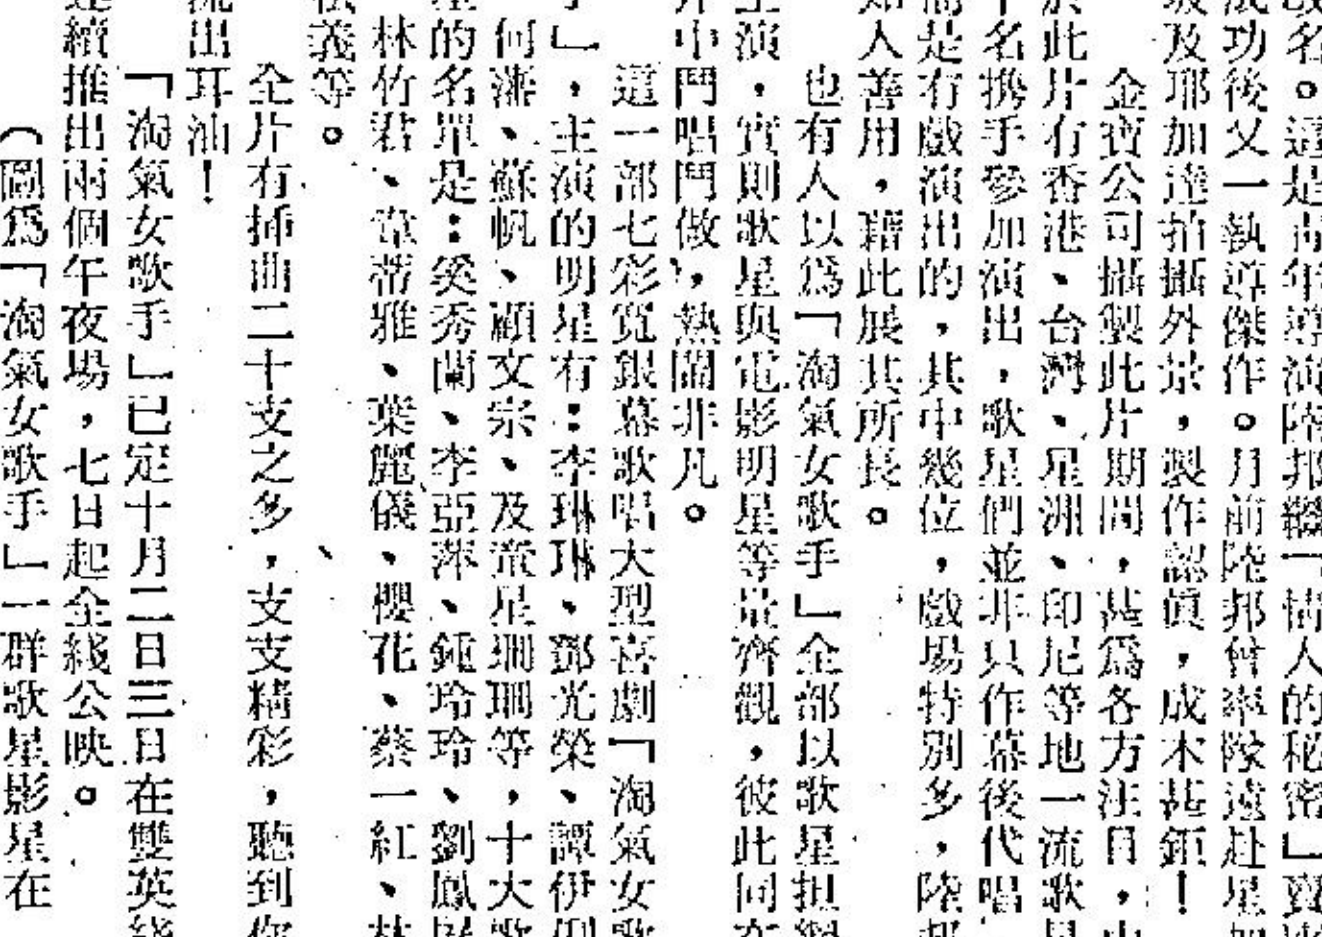 改名。這是青年導演陸邦繼「情人的秘密」賣
成功後又一執導傑作。月前陸邦曾率隊遠赴星加
坡及耶加達拍攝外景，製作認眞，成本甚鉅！
金寶公司攝製此片期間，甚爲各方注目，由
於此片有香港、台灣、星洲、印尼等地一流歌星
十名携手參加演出，歌星們並非只作幕後代唱
是有戲演出的，其中幾位，戲場特別多，陸邦
知人善用，藉此展其所長。
也有人以爲「淘氣女歌手」全部以歌星担綱
主演，實則歌星與電影明星等量齊觀，彼此同在
片中鬥唱鬥做，熱鬧非凡。
這一部七彩寬銀幕歌唱大型喜劇「淘氣女歌
手」，主演的明星有：李琳琳、鄧光榮、譚伊俐
何滌、蘇帆、顧文宗、及童星珊珊等，十大歌
星的名單是：奚秀蘭、李亞萍、鍾玲玲、劉鳳屏
林竹君、韋蒂雅、葉麗儀、櫻花、蔡一紅、林
義等。
全片有插曲二十支之多，支支精彩，聽到你
流出耳油！
「淘氣女歌手」已定十月二日三日在雙英綫
連續推出兩個午夜場，七日起全綫公映。
（圖爲「淘氣女歌手」一群歌星影星在